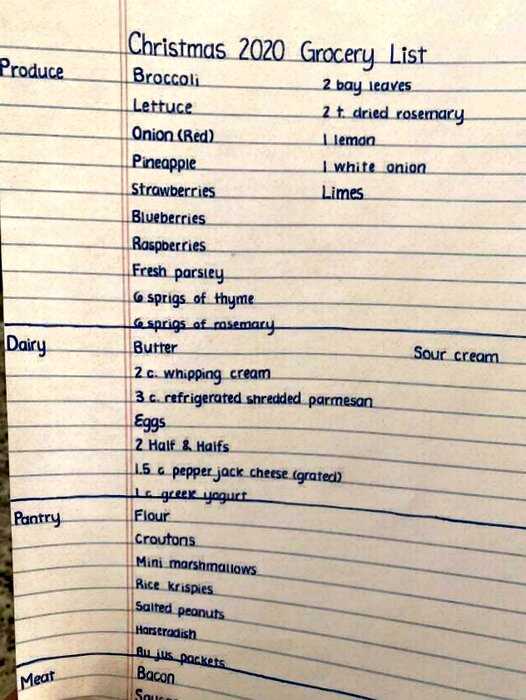 Christmas 2020 Grocery List
Produce Broccoli 2 bay leaves
Lettuce 2 t. dried rosemary
Onion (Red) 1 lemon
Pineapple 1 white onion
Strawberries Limes
Blueberries
Raspberries
Fresh parsley
6 sprigs of thyme
6 sprigs of rosemary
Dairy Butter Sour cream
2 c. whipping cream
3 c. refrigerated shredded parmesan
Eggs
2 Half & Halfs
1.5 c. pepper jack cheese (grated)
1 c. greek yogurt
Pantry Flour
Croutons
Mini marshmallows
Rice Krispies
Salted peanuts
Horseradish
Au jus packets
Meat Bacon